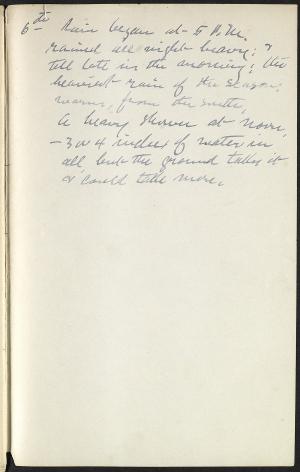 6th Rain began at 5 P.M.
rained all night heavy; &
till late in the morning; the
heaviest rain of the season;
warm, from the south,
A heavy shower at noon,
- 3 or 4 inches of water in
all, but the ground takes it
& could take more.